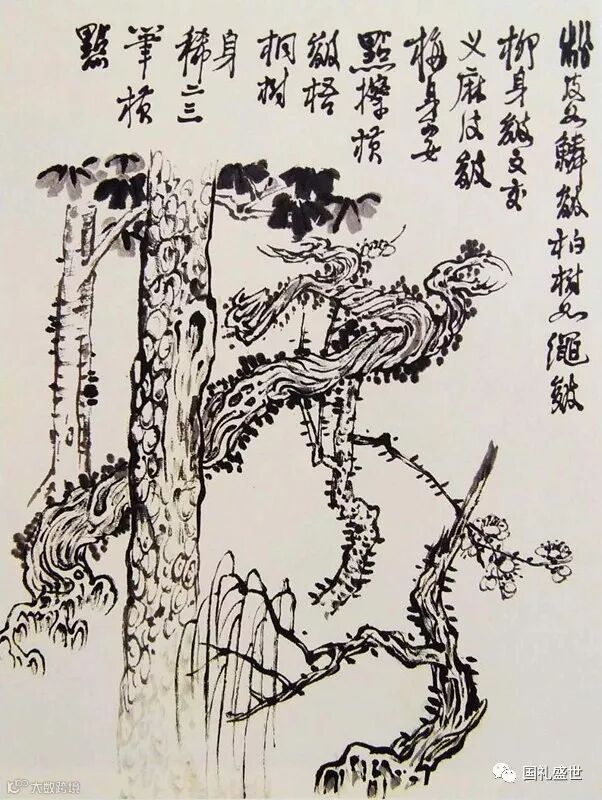 松皮如鱗皴柏樹如繩皴
柳身皴文交
叉麻皮皴
梅身要
點擦横
皴梧
桐樹
身
稀二三
筆横
點
大数跨境
国礼盛世